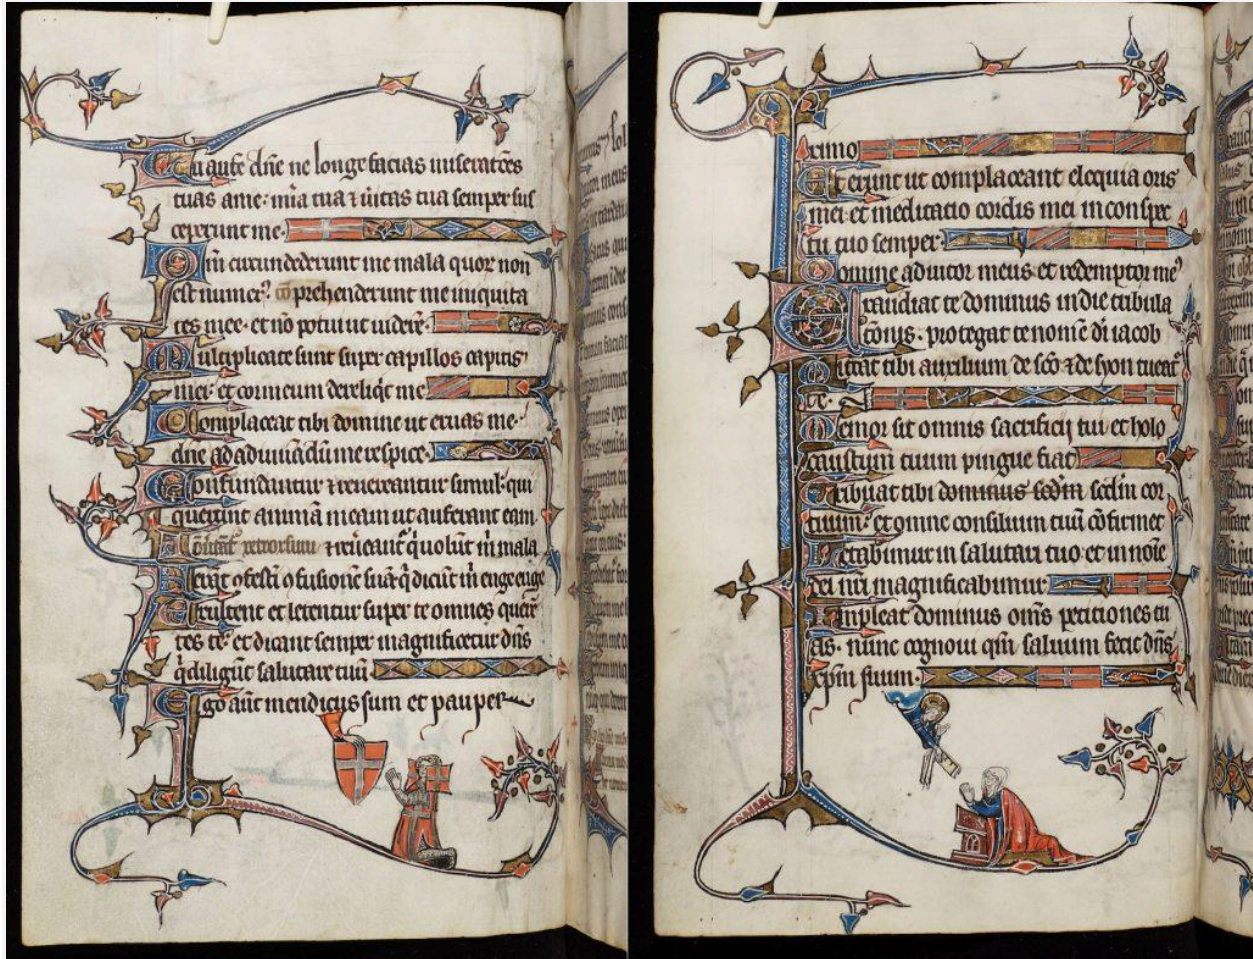 Tu autē dn̄e ne longe facias miseratōes
tuas a me· mīa tua ⁊ ūitas tua semper sus
ceperunt me·
Qm̄ circundederunt me mala quor non
est numer⁹· cōprehenderunt me iniquita
tes mee· et nō potui ut uiderē·
Multiplicate sunt super capillos capitis
mei· et cor meum dereliqͥt me
Complaceat tibi domine ut eruas me·
dn̄e ad adiuuādū me respice·
Confundantur ⁊ reuereantur simul· qui
querunt animā meam ut auferant eam
retrorsum ⁊ qͥ uolūt m̄ mala
suā qͥ dicūt m̄ euge euge
Exultent et letentur super te omnes querē
tes te· et dicant semper magnificetur dn̄s
qͥ diligūt salutare tuū·
Ego aūt mendicus sum et pauper
ximo
Et erunt ut complaceant eloquia oris
mei· et meditatio cordis mei in conspec
tu tuo semper·
Domine adiutor meus et redemptor me⁹
Exaudiat te dominus in die tribula
cōnis· protegat te nomē dī iacob
Mittat tibi auxilium de scō ⁊ de syon tueat̉
te·
Memor sit omnis sacrificij tui et holo
caustum tuum pingue fiat
Tribuat tibi dominus scdm̄ cor
tuum· et omne consilium tuū cōfirmet
Letabimur in salutari tuo et in noīe
dei nr̄i magnificabimur·
Impleat dominus om̄s petitiones tu
as· nunc cognoui qm̄ saluum fecit dn̄s
xpm̄ suum·